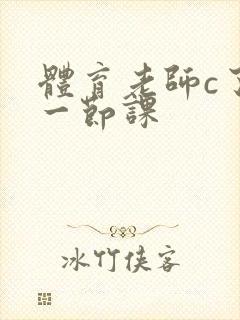 體育老師c了
一節課
冰竹俠客